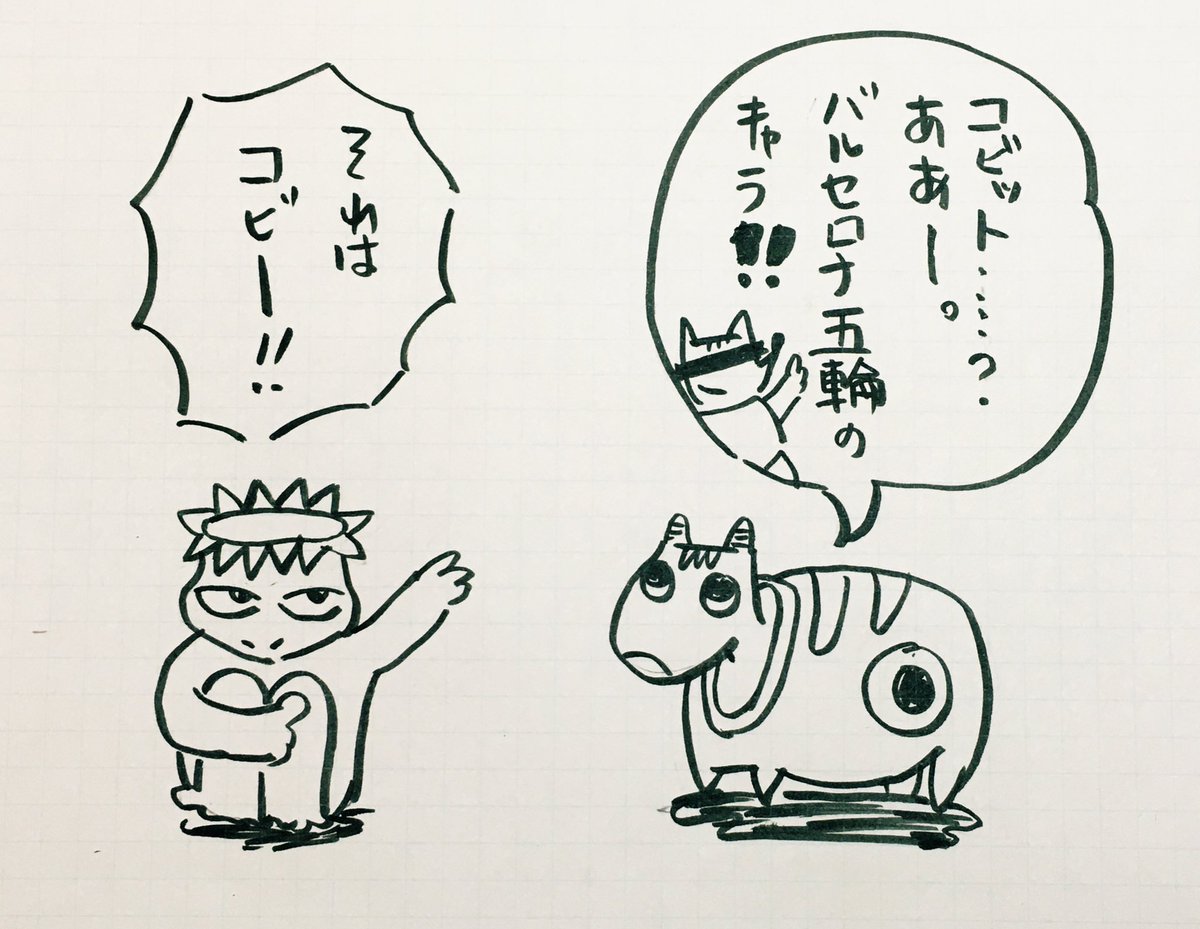 コビット……?
ああー。
バルセロナ五輪の
キャラ!!
それは
コビー!!